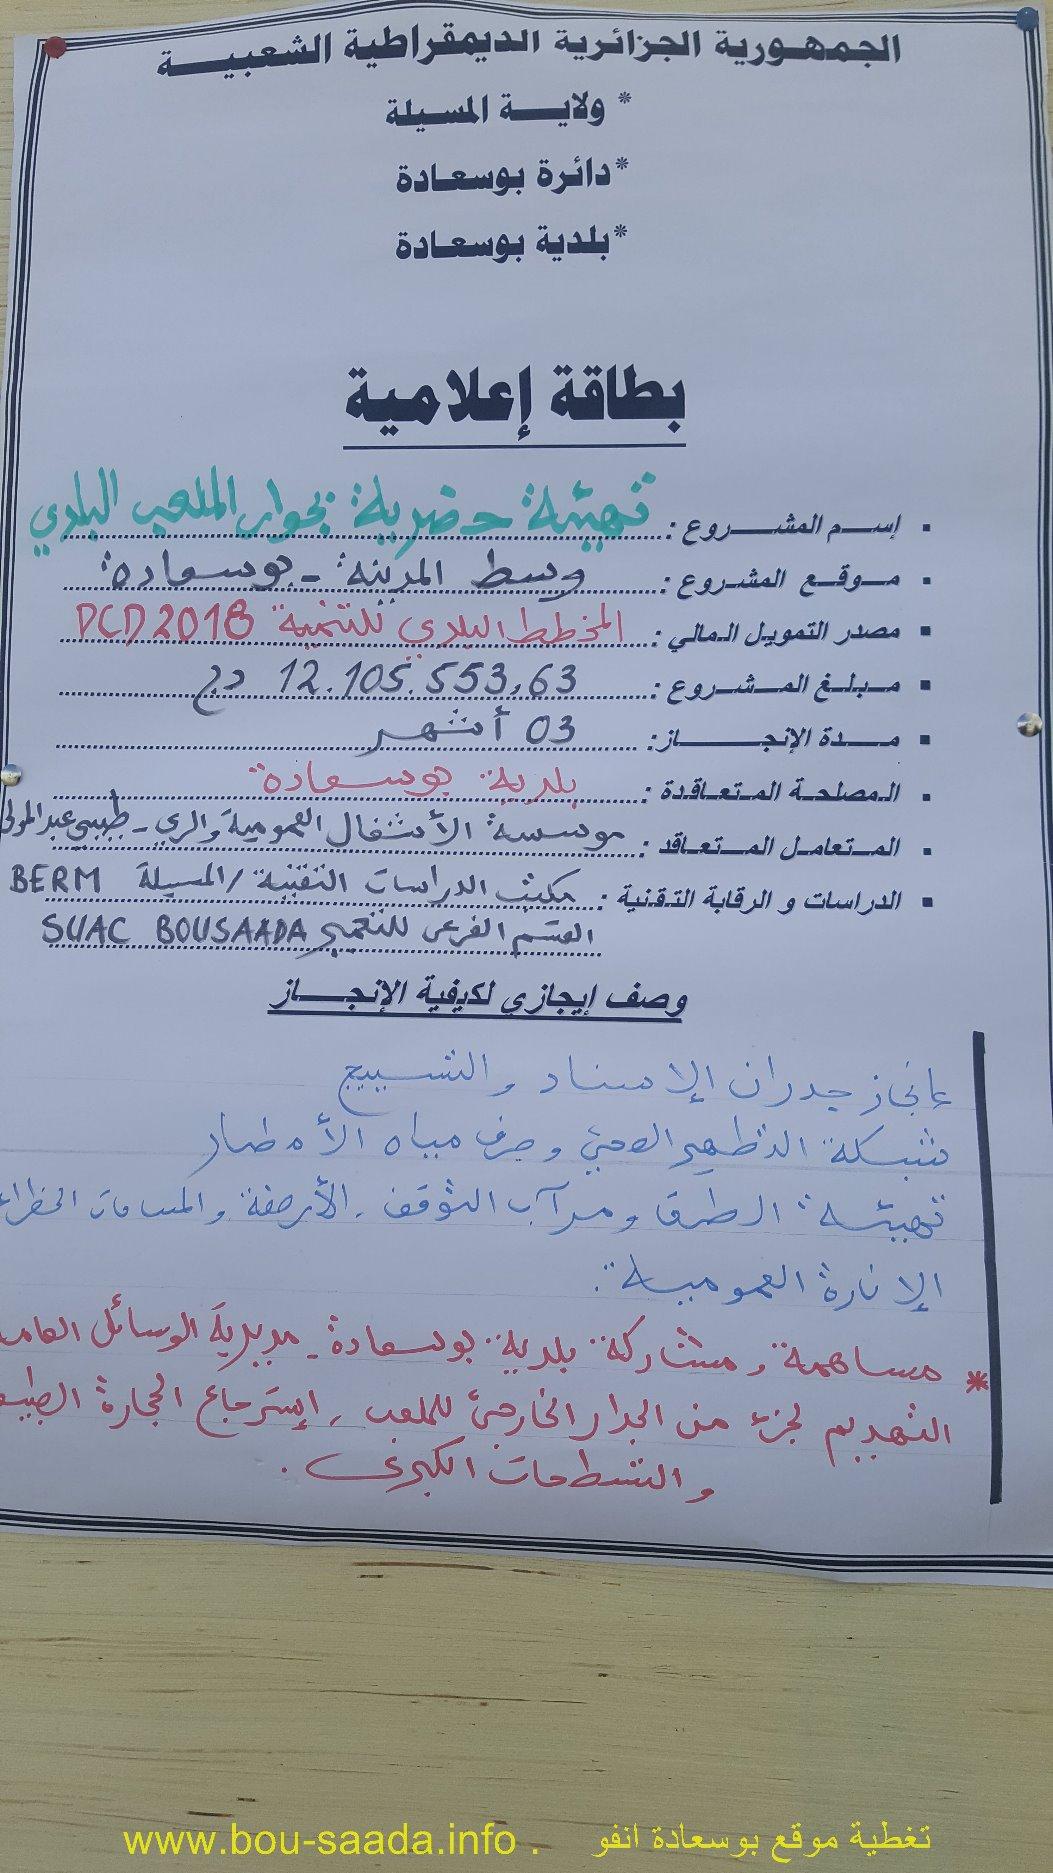 الجمهورية الجزائرية الديمقراطية الشعبية
* ولاية المسيلة
*دائرة بوسعادة
*بلدية بوسعادة
بطاقة إعلامية
▪ إسم المشروع : تهيئة حضرية بجوار الملعب البلدي
▪ موقع المشروع : وسط المدينة - بوسعادة
▪ مصدر التمويل المالي : المخطط البلدي للتنمية PCD 2018
▪ مبلغ المشروع : 12.105.553,63 دج
▪ مدة الإنجاز: 03 أشهر
▪ المصلحة المتعاقدة : بلدية بوسعادة
▪ المتعامل المتعاقد : موسسة الأشغال العمومية والري - طبيبي عبد المولى
▪ الدراسات و الرقابة التقنية : مكتب الدراسات التقنية / المسيلة BERM
القسم الفرعي للتعمير SUAC BOUSAADA
وصف إيجازي لكيفية الإنجاز
إنجاز جدران الإسناد والتسييج
شبكة التطهير الصحي وصرف مياه الأمطار
تهيئة الطرق ومرآب التوقف , الأرصفة والمساحات
الإنارة العمومية .
* مساهمة ومشاركة بلدية بوسعادة - مديرية الوسائل
التهديم لجزء من الجدار الخارجي للملعب , إسترجاع الحجارة
والتسطحات الكبرى .
تغطية موقع بوسعادة انفو . www.bou-saada.info